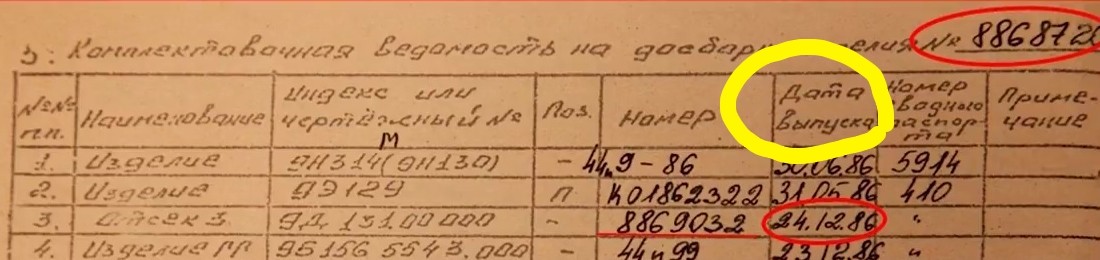 3. Комплектовочная ведомость на досбор изделия № 8868720
№№ пп. Наименование Индекс или чертёжный № Поз. Номер Дата выпуска Номер сводного паспорта Примечание
М
1. Изделие 9М314(9Н130) - 44,9-86 30.06.86 5914
2. Изделие 9Э129 П К01862322 31.05.86 410
3. Отсек 3. 9Д 13100000 - 8869032 24.12.86 "
4. Изделие ГГ 95156 5543.000 - 44п99 23.12.86 "